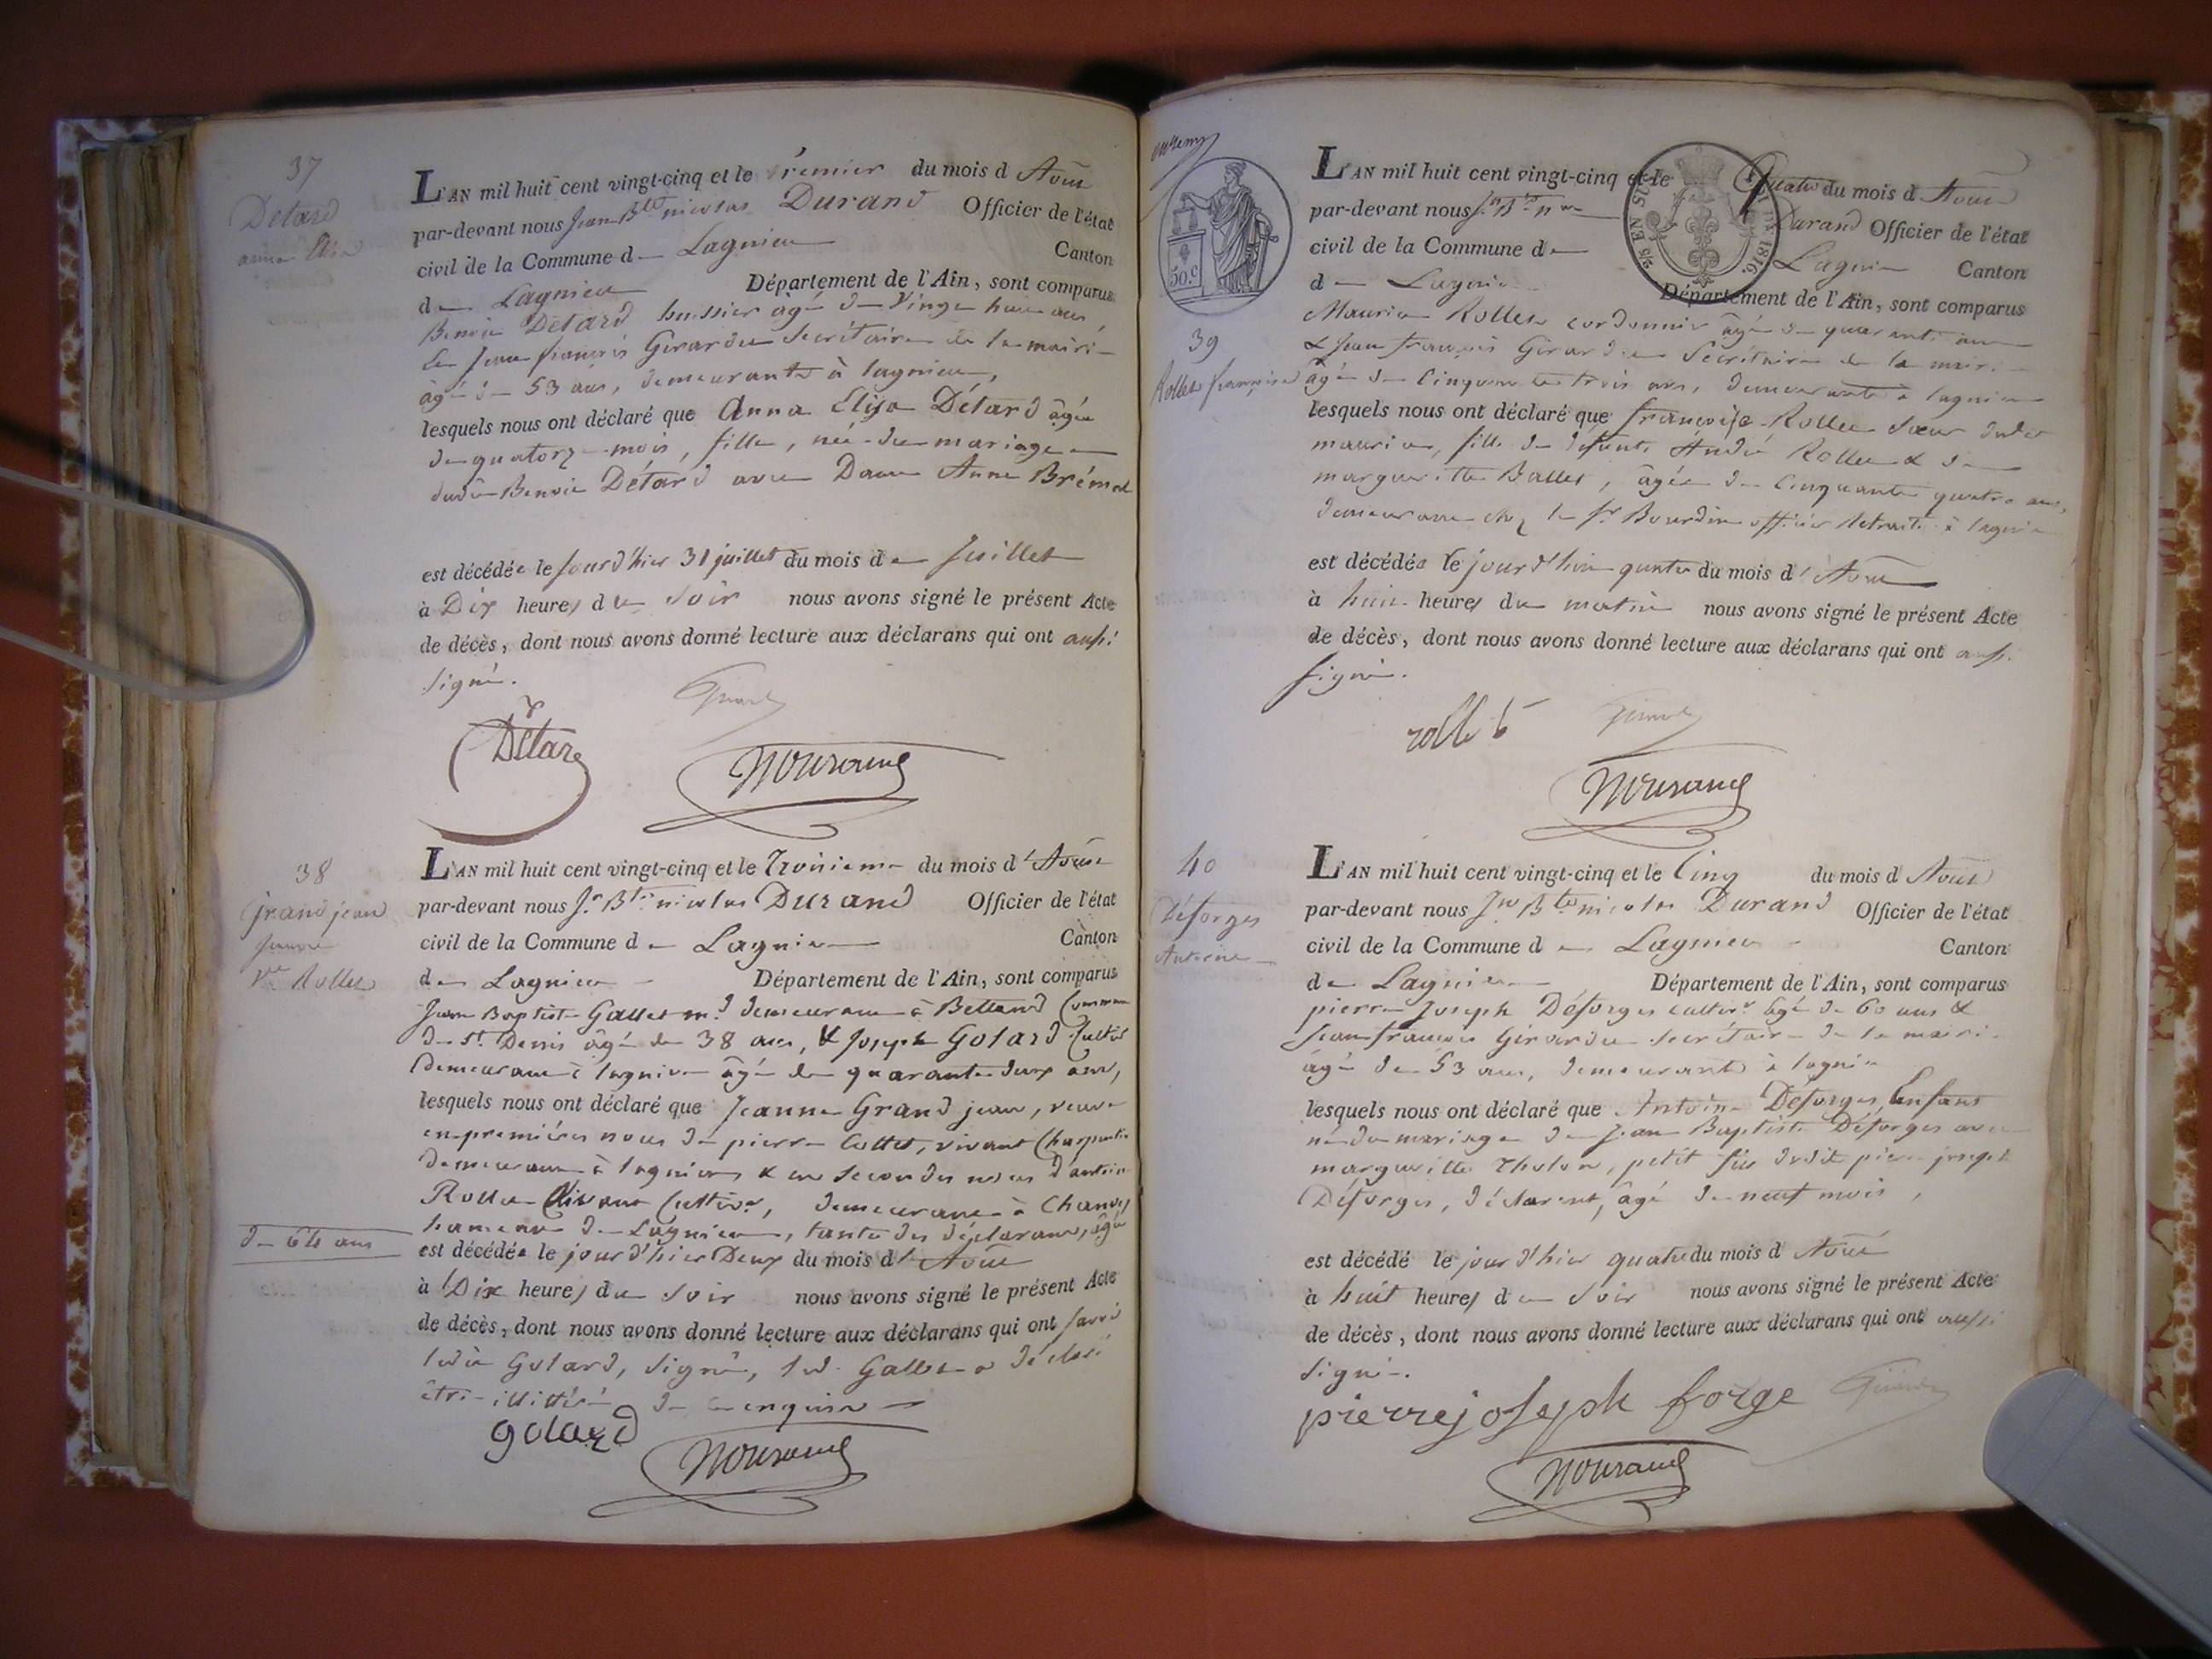 37
Détard
anna Elisa
L'AN mil huit cent vingt-cinq et le premier du mois d Aout
par-devant nous Jean Bte nicolas Durand Officier de l'état
civil de la Commune de Lagnieu Canton
de Lagnieu Département de l'Ain, sont comparus
Benoit Détard huissier âgé de Vingt huit ans,
et Jean françois Girardet Secrétaire de la mairie
âgé de 53 ans, demeurants à lagnieu,
lesquels nous ont déclaré que Anna Elisa Détard âgée
de quatorze mois, fille, née du mariage
dudit Benoit Détard avec Dame Anne
est décédée le jourd'hier 31 juillet du mois de Juillet
à Dix heures du soir nous avons signé le présent Acte
de décès, dont nous avons donné lecture aux déclarans qui ont aussi
signé.
Détard
NDurand
38
Grand jean
jeanne
Ve Rollet
L'AN mil huit cent vingt-cinq et le Troisieme du mois d'Aout
par-devant nous Jn Bte nicolas Durand Officier de l'état
civil de la Commune de Lagnieu Canton
de Lagnieu Département de l'Ain, sont comparus
Jean Baptiste Gallet md demeurant à Commune
de St Denis âgé de 38 ans, & Joseph Golard Cultivr
demeurant à lagnieu âgé de quarante deux ans,
lesquels nous ont déclaré que Jeanne Grand jean, veuve
en premières noces de pierre Cottet, vivant Charpentier
demeurant à lagnieu & en secondes noces d'antoine
Rollet vivant Cultivr, demeurant à
hameau de Lagnieu, tante des déclarans, âgée
de 64 ans
est décédée le jourd'hier Deux du mois d'Aout
à Dix heures du soir nous avons signé le présent Acte
de décès, dont nous avons donné lecture aux déclarans qui ont savoir
ledit Golard, signé, led. Gallet a déclaré
être illittéré de ce enquis
golard
NDurand
39
Rollet françoise
50.c
L'AN mil huit cent vingt-cinq et le Quatre du mois d Aout
par-devant nous Jn Bte nas Durand Officier de l'état
civil de la Commune de Lagnieu Canton
de Lagnieu Département de l'Ain, sont comparus
Maurice Rollet cordonnier âgé de quarante ans
& Jean françois Girardet Secrétaire de la mairie
âgé de Cinquante trois ans, demeurants à lagnieu
lesquels nous ont déclaré que françoise Rollet soeur dudit
maurice, fille de défunts André Rollet & de
margueritte Ballet, âgée de Cinquante quatre ans,
demeurant chez le sr Bourdin officier retraité à lagnieu
est décédée le jourd'hui quatre du mois d'Aout
à huit heures du matin nous avons signé le présent Acte
de décès, dont nous avons donné lecture aux déclarans qui ont aussi
signé.
rollet
NDurand
40
Déforges
Antoine
L'AN mil huit cent vingt-cinq et le Cinq du mois d Aout
par-devant nous Jn Bte nicolas Durand Officier de l'état
civil de la Commune de Lagnieu Canton
de Lagnieu Département de l'Ain, sont comparus
pierre Joseph Déforges cultivr âgé de 60 ans &
Jean françois Girardet secrétaire de la mairie
âgé de 53 ans, demeurants à lagnieu
lesquels nous ont déclaré que Antoine Déforges, Enfant
né du mariage de Jean Baptiste Déforges avec
margueritte Tholon, petit fils dudit pierre joseph
Déforges, déclarant, âgé de neuf mois,
est décédé le jour d'hier quatre du mois d Aout
à huit heures du soir nous avons signé le présent Acte
de décès, dont nous avons donné lecture aux déclarans qui ont aussi
signé.
pierrejoseph forge
NDurand